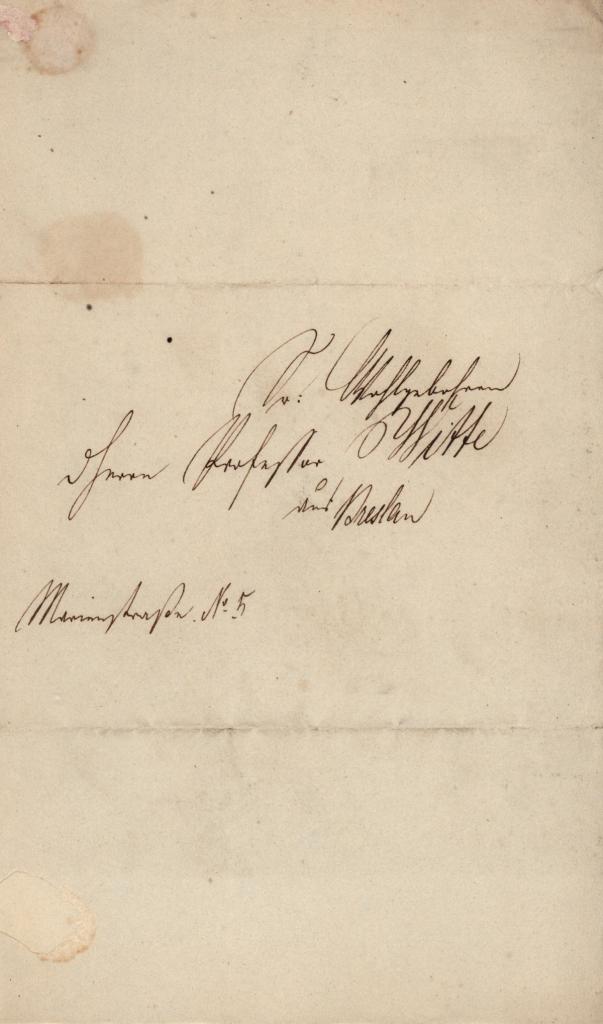 Sr: Wohlgebohren
Herrn Professor Witte
aus Breslau
Marienstraße. No. 5